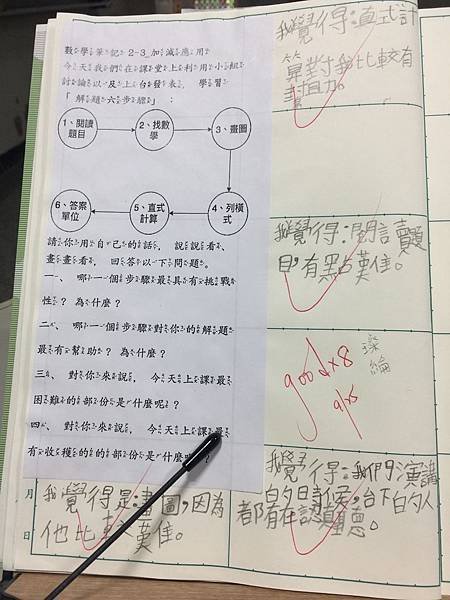 數學筆記 2-3 加減應用
今天我們在課堂上利用小組
討論以及上台發表，學習
「解題六步驟」：
1、閱讀
題目
2、找數
學
3、畫圖
4、列橫
式
5、直式
計算
6、答案
單位
請你用自己的話，說說看、
畫畫看，回答以下問題。
一、哪一個步驟最具有挑戰
性？為什麼？
二、哪一個步驟對你的解題
最有幫助？為什麼？
三、對你來說，今天上課最
困難的部份是什麼呢？
四、對你來說，今天上課最
有收穫的的部份是什麼
？
我覺得：直式計
算對我比較有
我覺得：閱讀題
目，有點難。
goodx8
我覺得：我們演講
的時候，台下的人
都有在認真聽。
月
日
我覺得是：畫圖，因為
他比較難。